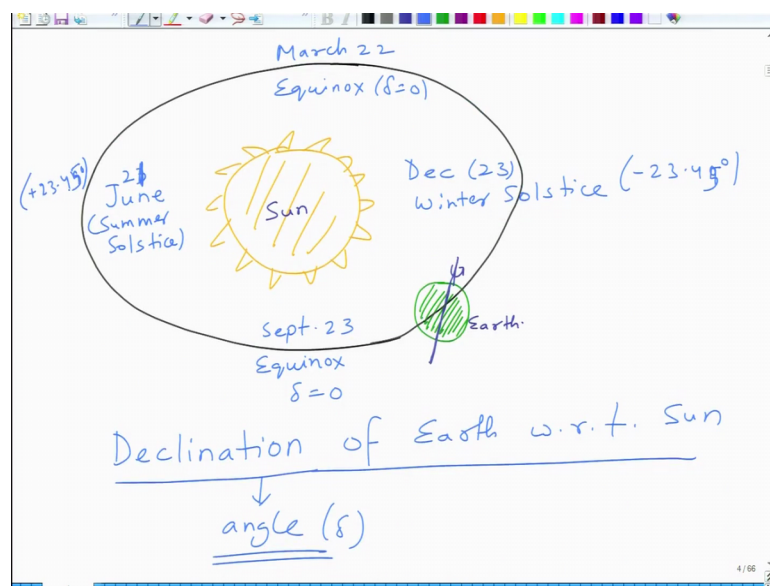 March 22
Equinox (δ=0)
(+23.45°)
21
June
(Summer
Solstice)
Sun
Dec (23)
Winter Solstice (-23.45°)
Sept. 23
Equinox
δ=0
Earth.
Declination of Earth w.r.t. Sun
angle (δ)
4/66